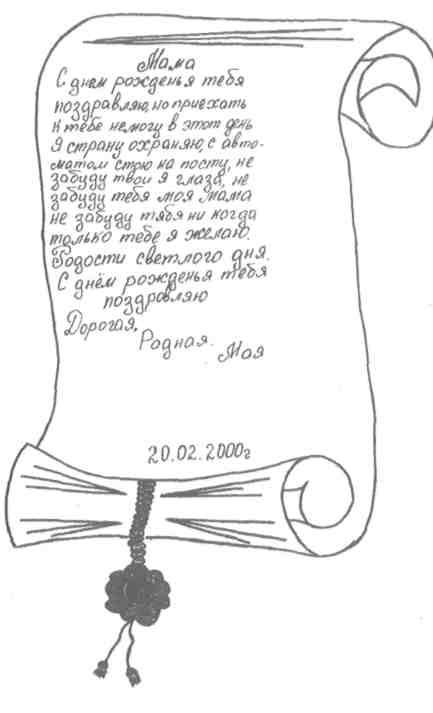 Мама
С днем рожденья тебя
поздравляю, но приехать
к тебе немогу в этот день
Я страну охраняю, с авто-
матом стою на посту, не
забуду твои я глаза, не
забуду тебя моя мама
не забуду тябя ни когда
только тебе я желаю.
Радости светлого дня.
С днём рожденья тебя
поздровляю
Дорогая.
Родная.
Моя
20.02.2000г